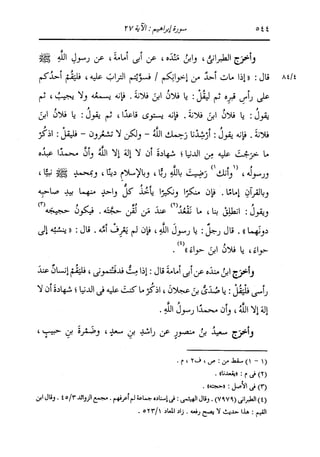 ٥٤٤ سورة إبراهيم : الآية ٢٧
وأخرج الطبرانيُّ، وابنُ مَنْدَه، عن أبي أمامةَ، عن رسولِ اللَّهِ ﷺ
٨٤/٤ قال: «إذا مات أحدٌ من إخوانِكم / فسوَّيتُم الترابَ عليه، فليَقُمْ أحدُكم
على رأسِ قبرِه ثم ليقُلْ: يا فلانُ ابنَ فلانةَ. فإنه يسمعُه ولا يجيبُ، ثم
يقولُ: يا فلانُ ابنَ فلانةَ. فإنه يستوى قاعدًا، ثم يقولُ: يا فلانُ ابنَ
فلانةَ. فإنه يقولُ: أرْشِدْنا رَحِمك اللَّهُ - ولكن لا تشعُرون - فليقلْ: اذكُرْ
ما خرَجتَ عليه مِن الدنيا؛ شهادةَ أن لا إلهَ إلا اللَّهُ وأن محمدًا عبدُه
ورسولُه، (١)وأنك(١) رَضِيتَ باللَّهِ ربًّا، وبالإسلامِ دينًا، وبمحمدٍ ﷺ نبيًّا،
وبالقرآنِ إمامًا. فإن منكرًا ونكيرًا يأخُذُ كلُّ واحدٍ منهما بيدِ صاحبِه
ويقولُ: انطلِقْ بنا، ما نَقْعُدُ(٢) عندَ مَن لُقِّن حجتَه. فيكونُ حجيجَه(٣)
دونَهما». قال رجلٌ: يا رسولَ اللَّهِ، فإن لم يَعْرِفْ أمَّه. قال: «ينسُبُه إلى
حواءَ، يا فلانُ ابنَ حواءَ»(٤).
وأخرَج ابنُ منده عن أبي أمامةَ قال: إذا مِتُّ فدفَنْتمونى، فليَقُمْ إنسانٌ عندَ
رأسى فليَقُلْ: يا صُدَىُّ بنَ عجلانَ، اذكرْ ما كنتَ عليه في الدنيا؛ شهادةَ أن لا
إلهَ إلا اللَّهُ، وأن محمدًا رسولُ اللَّهِ.
وأخرَج سعيدُ بنُ منصورٍ عن راشدِ بنِ سعدٍ، وضَمْرةَ بنِ حبيبٍ،
(١ - ١) سقط من: ص، ف٢، م.
(٢) في م: «يقعدنا».
(٣) في الأصل: «حجته».
(٤) الطبراني (٧٩٧٩). وقال الهيثمى: في إسناده جماعة لم أعرفهم. مجمع الزوائد ٤٥/٣. وقال ابن
القيم: هذا حديث لا يصح رفعه. زاد المعاد ٥٢٣/١.